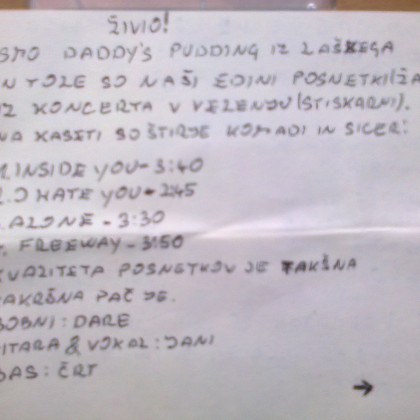 ŽIVIO!
SMO DADDY'S PUDDING IZ LAŠKEGA
IN TOLE SO NAŠI EDINI POSNETKI(ŽA
IZ KONCERTA V VELENJU(STISKARNI).
NA KASETI SO ŠTIRJE KOMADI IN SICER:
1. INSIDE YOU - 3:40
2. HATE YOU - 2:45
. ALONE - 3:30
. FREEWAY - 3:50
KVALITETA POSNETKOV JE TAKŠNA
KAKRŠNA PAČ JE.
BOBNI : DARE
KITARA & VOKAL : JANI
BAS : ČRT
→